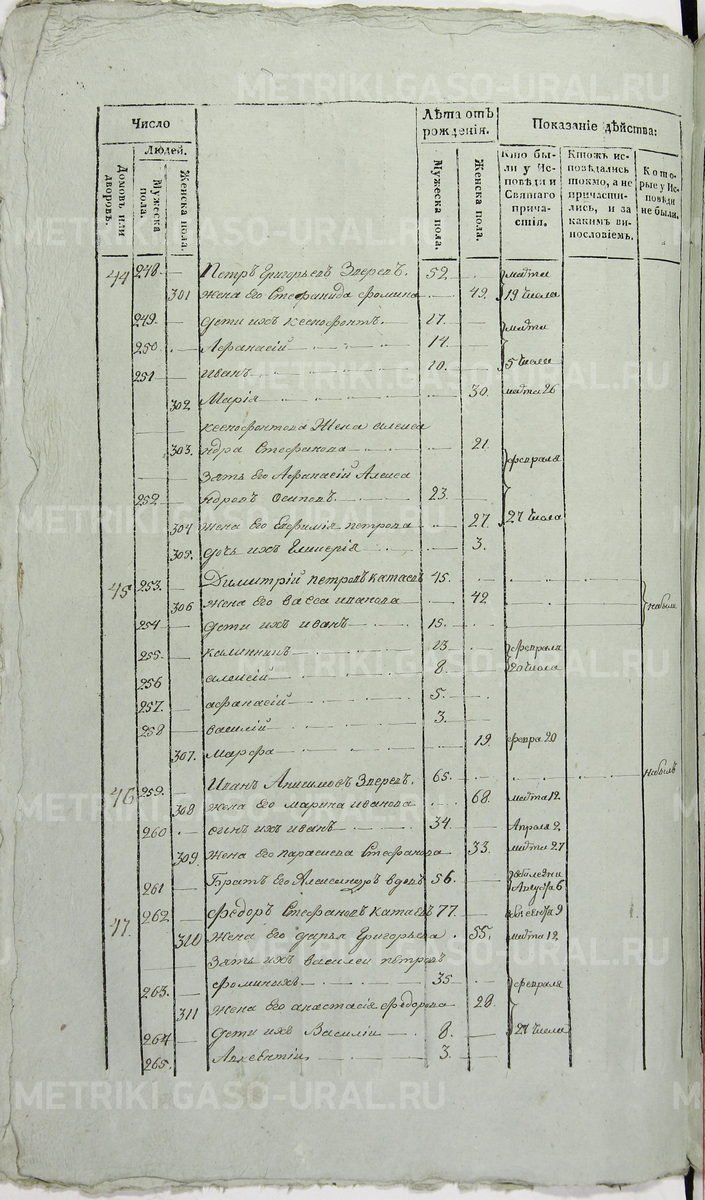 METRIKI.GASO-URAL.RU
Число
Лѣта отъ рожденія.
Показаніе дѣйства:
Людей.
Домовъ или дворовъ.
Мужеска пола.
Женска пола.
Мужеска пола.
Женска пола.
Кто были у Исповѣди и Святаго причастія.
Ктожъ исповѣдались токмо, а не причастились, и за какимъ винословіемъ.
Которые у Исповѣди не были.
44 248. Петръ Григорьевъ Зверевъ. 52. марта
301 жена Его Стефанида фомина 49. 19 числа
249. дети ихъ ксенофонтъ. 17. марта
250. Афанасій 14.
251 иванъ 10. 5 числа
302. Марія 30. марта 26
ксенофонтова Жена алекса
303. ндра Стефанова 21.
Зять Его Афанасій Алекса февраля
252. ндровъ Осиповъ 23.
304 жена Его Евфимія петрова 27. 27 числа
305. дочь ихъ Гликерія 3.
45 253. Димитрій петровъ катаевъ 45.
306 жена Его васса иванова 42. небыли
254 дети ихъ иванъ 15.
255. калинникъ 13. февраля
256 алексій 8. 20 числа
257. афанасій 5.
258 василій 3.
307. марфа 19. февра 20
46 259. Иванъ Анисимовъ Зверевъ. 65. небылъ
308 жена его марина иванова 68. марта 12.
260. сынъ ихъ иванъ 34. Апреля 2.
309. жена Его параскева Стефанова 33. марта 27
261 Братъ Его Александръ вдовъ 56. 6
47. 262. Федоръ Стефановъ катаевъ 77. 9
310 жена Его дарья Григорьева. 55. марта 12.
Зять ихъ василеи петровъ
263. фоминыхъ 35 февраля
311 жена Его анастасія федорова 28.
264 дети ихъ Василіи 8. 27 числа
265. 3.